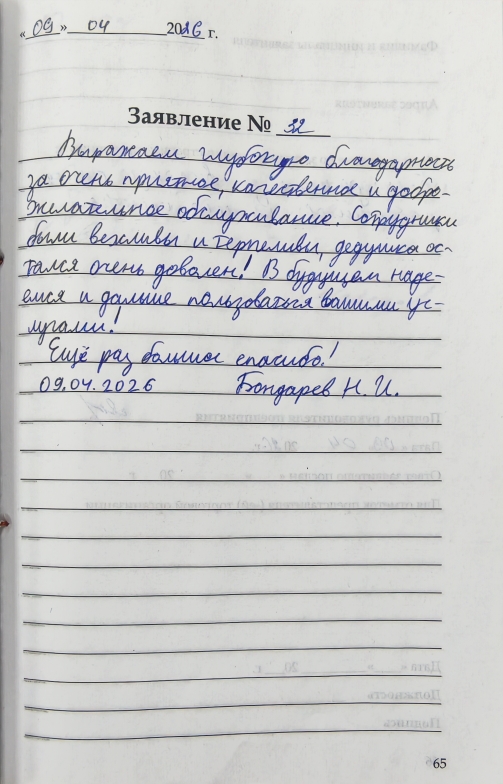 « 09 » 04 2026 г.
Заявление № 32
Выражаем глубокую благодарность
за очень приятное, качественное и добро-
желательное обслуживание. Сотрудники
были вежливы и терпеливы, дедушка ос-
тался очень доволен! В будущем наде-
емся и дальше пользоваться вашими ус-
лугами!
Ещё раз большое спасибо!
09.04.2026 Бондарев Н. И.
65